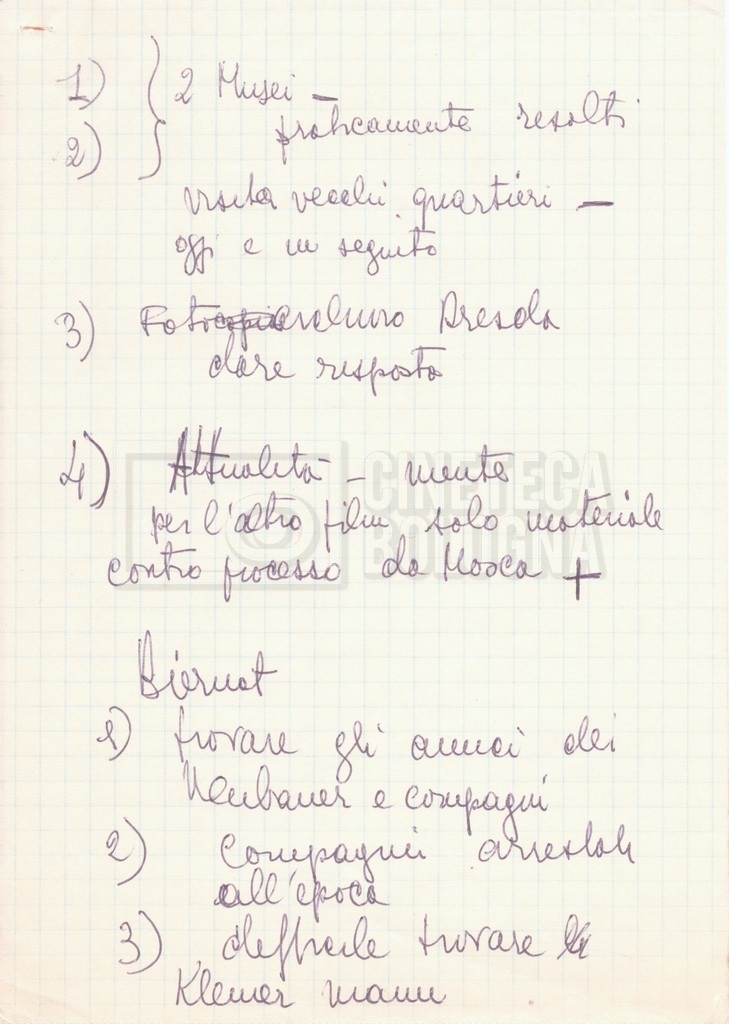 1) } 2 Musei -
2) praticamente risolti
visita vecchi quartieri -
oggi e in seguito
3) Foto archivio Dresda
dare risposta
4) Attualità - niente
per l'altro film, solo materiale
contro processo da Mosca +
CINETECA
BOLOGNA
Biernat
1) trovare gli amici dei
Neubauer e compagni
2) compagni arrestati
all'epoca
3) difficile trovare
Klemer mann